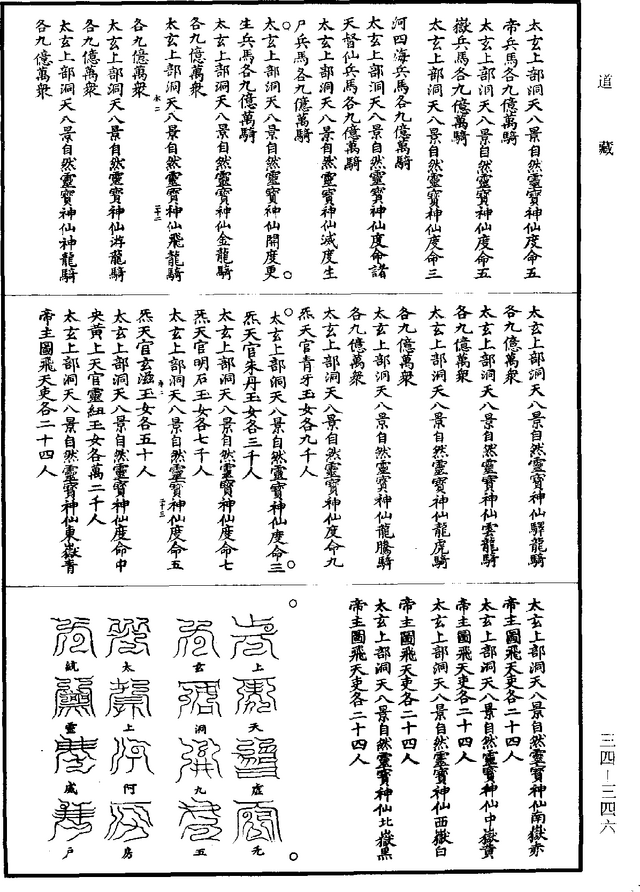 道藏
太玄上部洞天八景自然靈寶神仙度命五
帝兵馬各九億萬騎
太玄上部洞天八景自然靈寶神仙度命五
嶽兵馬各九億萬騎
太玄上部洞天八景自然靈寶神仙度命三
河四海兵馬各九億萬騎
太玄上部洞天八景自然靈寶神仙度命諸
天督仙兵馬各九億萬騎
太玄上部洞天八景自然靈寶神仙滅度生
尸兵馬各九億萬騎
太玄上部洞天八景自然靈寶神仙開度更
生兵馬各九億萬騎
太玄上部洞天八景自然靈寶神仙金龍騎
各九億萬衆
太玄上部洞天八景自然靈寶神仙飛龍騎
各九億萬衆
太玄上部洞天八景自然靈寶神仙游龍騎
各九億萬衆
太玄上部洞天八景自然靈寶神仙神龍騎
各九億萬衆
太玄上部洞天八景自然靈寶神仙驛龍騎
各九億萬衆
太玄上部洞天八景自然靈寶神仙雲龍騎
各九億萬衆
太玄上部洞天八景自然靈寶神仙龍虎騎
各九億萬衆
太玄上部洞天八景自然靈寶神仙龍騰騎
各九億萬衆
太玄上部洞天八景自然靈寶神仙度命九
炁天官青牙玉女各九千人
太玄上部洞天八景自然靈寶神仙度命三
炁天官朱丹玉女各三千人
太玄上部洞天八景自然靈寶神仙度命七
炁天官明石玉女各七千人
太玄上部洞天八景自然靈寶神仙度命五
炁天官玄滋玉女各五十人
太玄上部洞天八景自然靈寶神仙度命中
央黄上天官靈紐玉女各萬二千人
太玄上部洞天八景自然靈寶神仙東嶽青
帝主圖飛天吏各二十四人
太玄上部洞天八景自然靈寶神仙南嶽赤
帝主圖飛天吏各二十四人
太玄上部洞天八景自然靈寶神仙中嶽黄
帝主圖飛天吏各二十四人
太玄上部洞天八景自然靈寶神仙西嶽白
帝主圖飛天吏各二十四人
太玄上部洞天八景自然靈寶神仙北嶽黑
帝主圖飛天吏各二十四人
上 天 虛 元
玄 洞 九 五
太 上 阿 房
統 靈 威 戶
三四－三四六